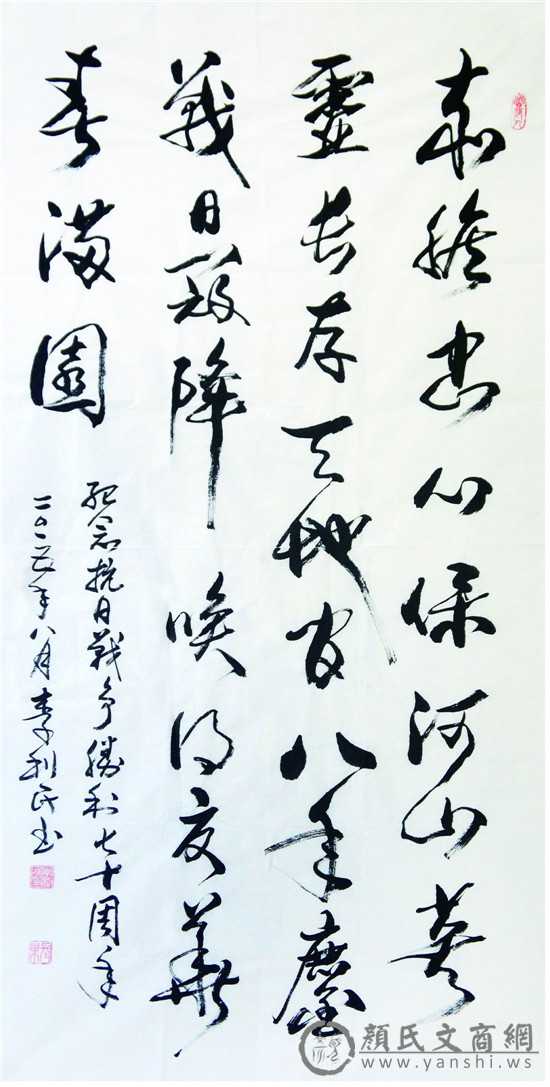 赤膽忠心保河山英
靈長存天地間八年鏖
戰日寇降喚得夏華
春滿園
紀念抗日戰争勝利七十周年
二〇一五年八月李利民书
顏氏文商網
www.yanshi.ws